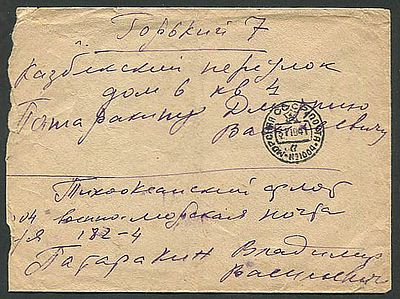 Горький 7
Казбекский переулок
дом 6 кв 4
Патаракину Дмитрию
Васильевичу
СССР ПОЧТА
ВОЕН.-МОРСКАЯ
Тихоокеанский флот
Военно-морская почта
182-4
Патаракин Владимир
Васильевич